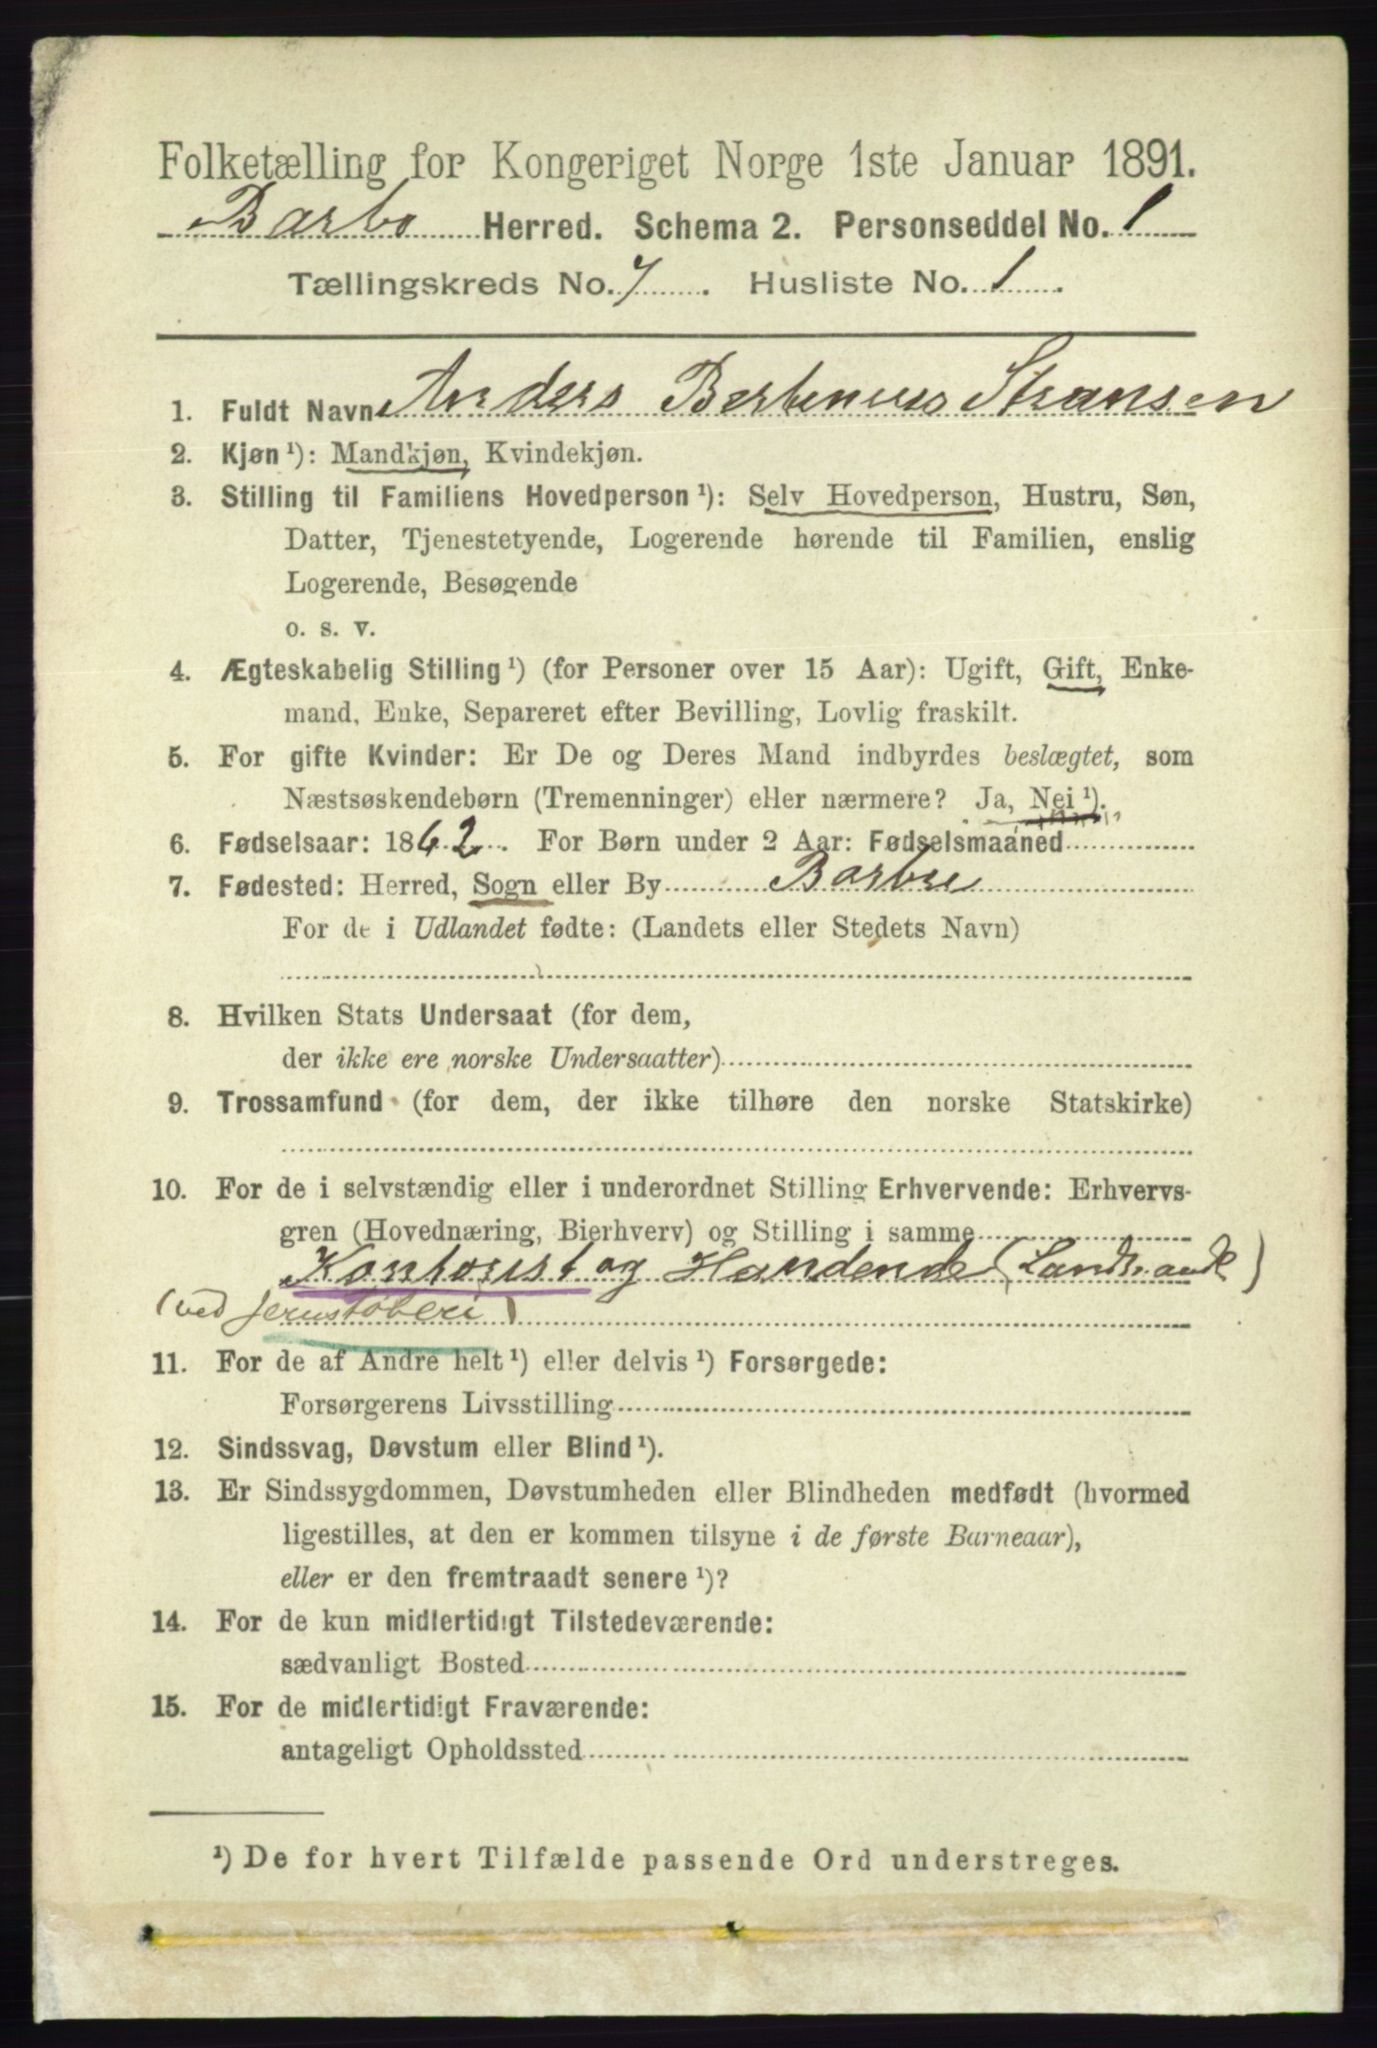 Folketælling for Kongeriget Norge 1ste Januar 1891.
Barbo Herred. Schema 2. Personseddel No. 1
Tællingskreds No. 7. Husliste No. 1.
1. Fuldt Navn Anders Stransen
2. Kjøn ¹): Mandkjøn, Kvindekjøn.
3. Stilling til Familiens Hovedperson ¹): Selv Hovedperson, Hustru, Søn,
Datter, Tjenestetyende, Logerende hørende til Familien, enslig
Logerende, Besøgende
o. s. v.
4. Ægteskabelig Stilling ¹) (for Personer over 15 Aar): Ugift, Gift, Enke-
mand, Enke, Separeret efter Bevilling, Lovlig fraskilt.
5. For gifte Kvinder: Er De og Deres Mand indbyrdes beslægtet, som
Næstsøskendebørn (Tremenninger) eller nærmere? Ja, Nei ¹).
6. Fødselsaar: 1862. For Børn under 2 Aar: Fødselsmaaned
7. Fødested: Herred, Sogn eller By Barbu
For de i Udlandet fødte: (Landets eller Stedets Navn)
8. Hvilken Stats Undersaat (for dem,
der ikke ere norske Undersaatter)
9. Trossamfund (for dem, der ikke tilhøre den norske Statskirke)
10. For de i selvstændig eller i underordnet Stilling Erhvervende: Erhvervs-
gren (Hovednæring, Bierhverv) og Stilling i samme
Kontorist og Handende
(ved Jernstøberi)
11. For de af Andre helt ¹) eller delvis ¹) Forsørgede:
Forsørgerens Livsstilling
12. Sindssvag, Døvstum eller Blind ¹).
13. Er Sindssygdommen, Døvstumheden eller Blindheden medfødt (hvormed
ligestilles, at den er kommen tilsyne i de første Barneaar),
eller er den fremtraadt senere ¹)?
14. For de kun midlertidigt Tilstedeværende:
sædvanligt Bosted
15. For de midlertidigt Fraværende:
antageligt Opholdssted
¹) De for hvert Tilfælde passende Ord understreges.